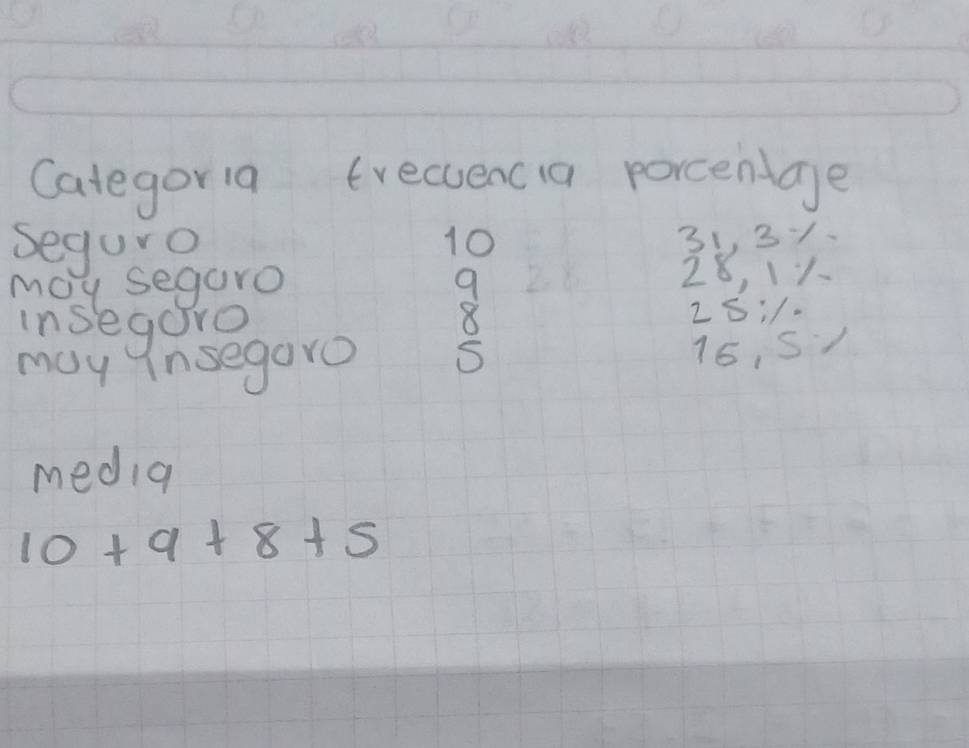 Categoria frecuencia porcentage
seguro 10 31,3%
muy seguro 9 28,1%
inseguro 8 25%
muy inseguro 5 16,5%
media
10 + 9 + 8 + 5